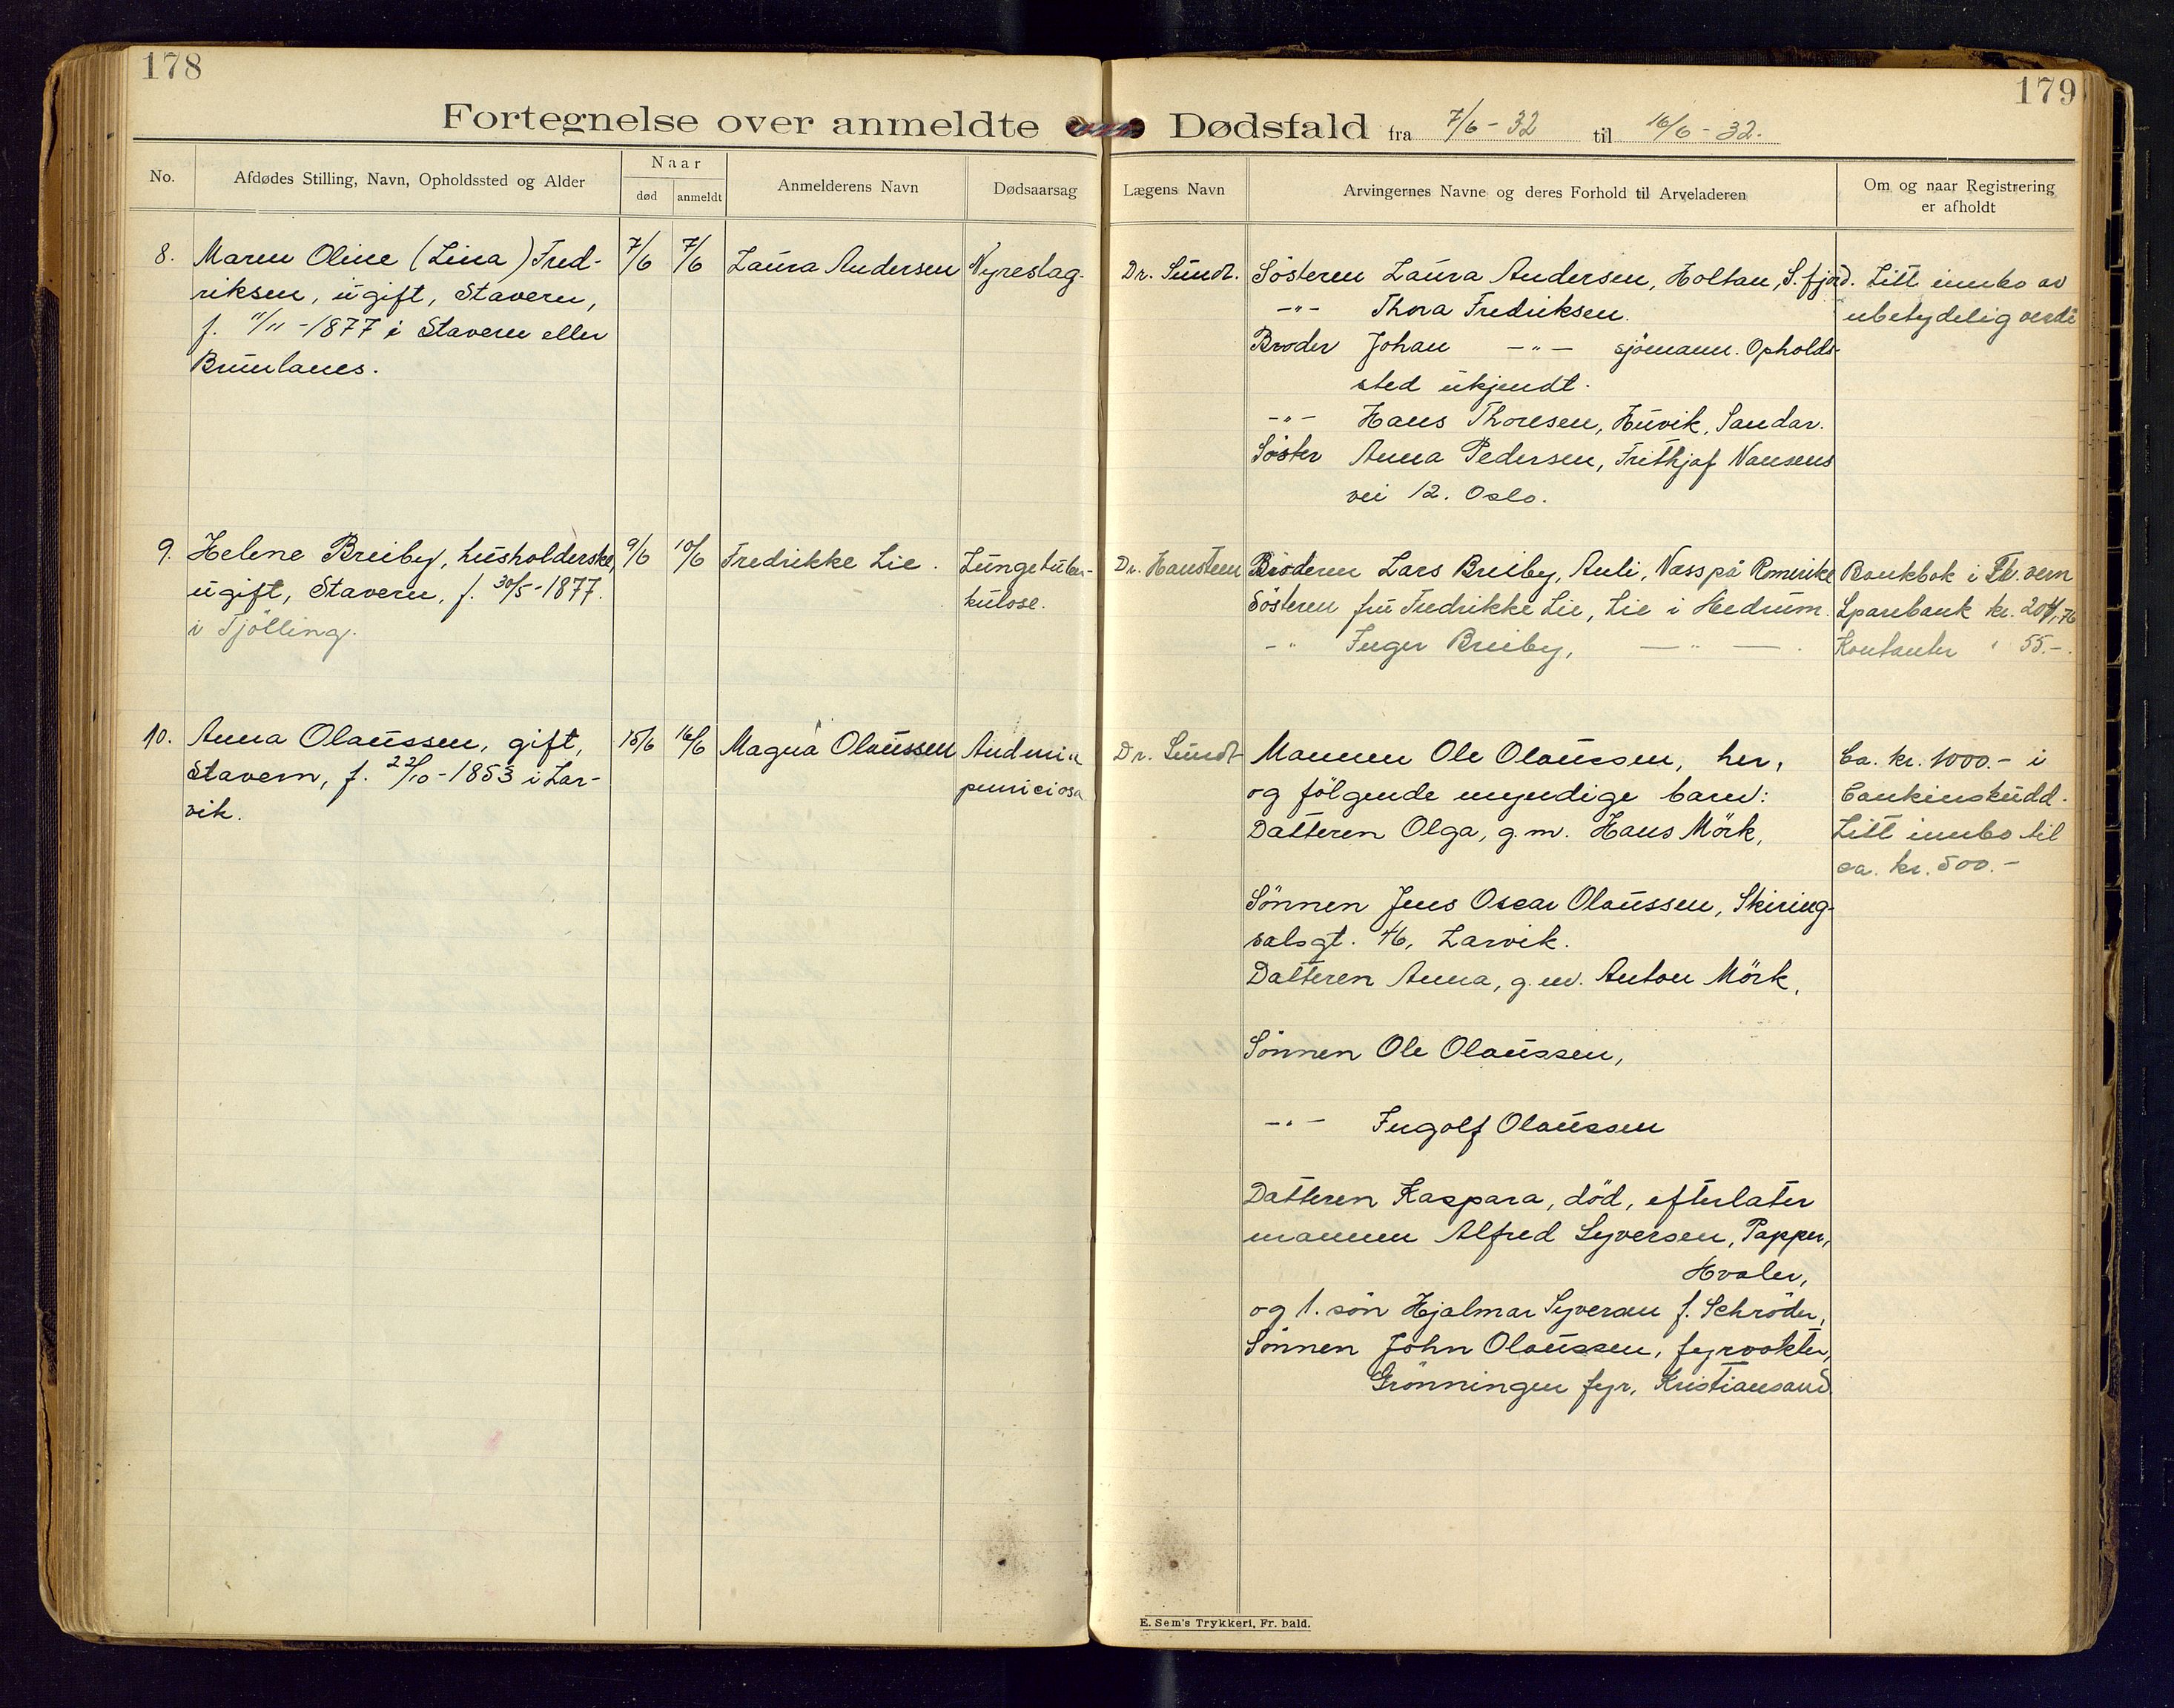 178
Fortegnelse over anmeldte
No.
Afdødes Stilling, Navn, Opholdssted og Alder
Naar
død
anmeldt
Anmelderens Navn
Dødsaarsag
8.
Maren Oline (Lina) Fred-
riksen, ugift, Stavern,
f. 11/11-1877 i Stavern eller
Brunlanes.
7/6
7/6
Laura Andersen
Nyreslag.
9.
Helene Breiby, husholderske,
ugift, Stavern, f. 30/5-1877.
i Tjölling.
9/6
10/6
Fredrikke Lie.
Lungetuber-
kulose.
10.
Anna Olaussen, gift,
Stavern, f. 22/10-1853 i Lar-
vik.
15/6
16/6
Magna Olaussen
perniciosa
179
Dødsfald fra 7/6-32 til 16/6-32.
Lægens Navn
Arvingernes Navne og deres Forhold til Arveladeren
Om og naar Registrering
er afholdt
Dr. Sundt.
Søsteren Laura Andersen, Holtan, S.fjord.
-"- Thora Fredriksen.
Broder Johan -"- sjömann. Opholds-
sted ukjendt.
-"- Hans Thoresen, Huvik, Sandar.
Søster Anna Pedersen, Frithjof Nansens
vei 12. Oslo.
Litt innbo av
ubetydelig verdi
Dr. Hansteen
Broderen Lars Breiby, Auli, Næss på Romerike
Søsteren fru Fredrikke Lie, Lie i Hedrum.
-"- Inger Breiby, -"- .
Bankbok i Fr.vern
Sparebank kr. 204,76
Kontanter " 55.-.
Dr. Sundt
Mannen Ole Olaussen, her,
og følgende myndige barn:
Datteren Olga, g.m. Hans Mörk,
Sønnen Jens Oscar Olaussen, Skiring-
salsgt. 46, Larvik.
Datteren Anna, g.m. Anton Mörk,
Sønnen Ole Olaussen,
-"- Ingolf Olaussen
Datteren Kaspara, död, efterlater
mannen Alfred Syversen, Papper,
Hvaler,
og 1. søn Hjalmar Syversen f. Schröder,
Sønnen John Olaussen, fyrvokter,
Grønningen fyr, Kristiansand
Ca. kr. 1000.- i
bankinskudd.
Litt innbo til
ca. kr. 500.-
E. Sem's Trykkeri, Fr.hald.